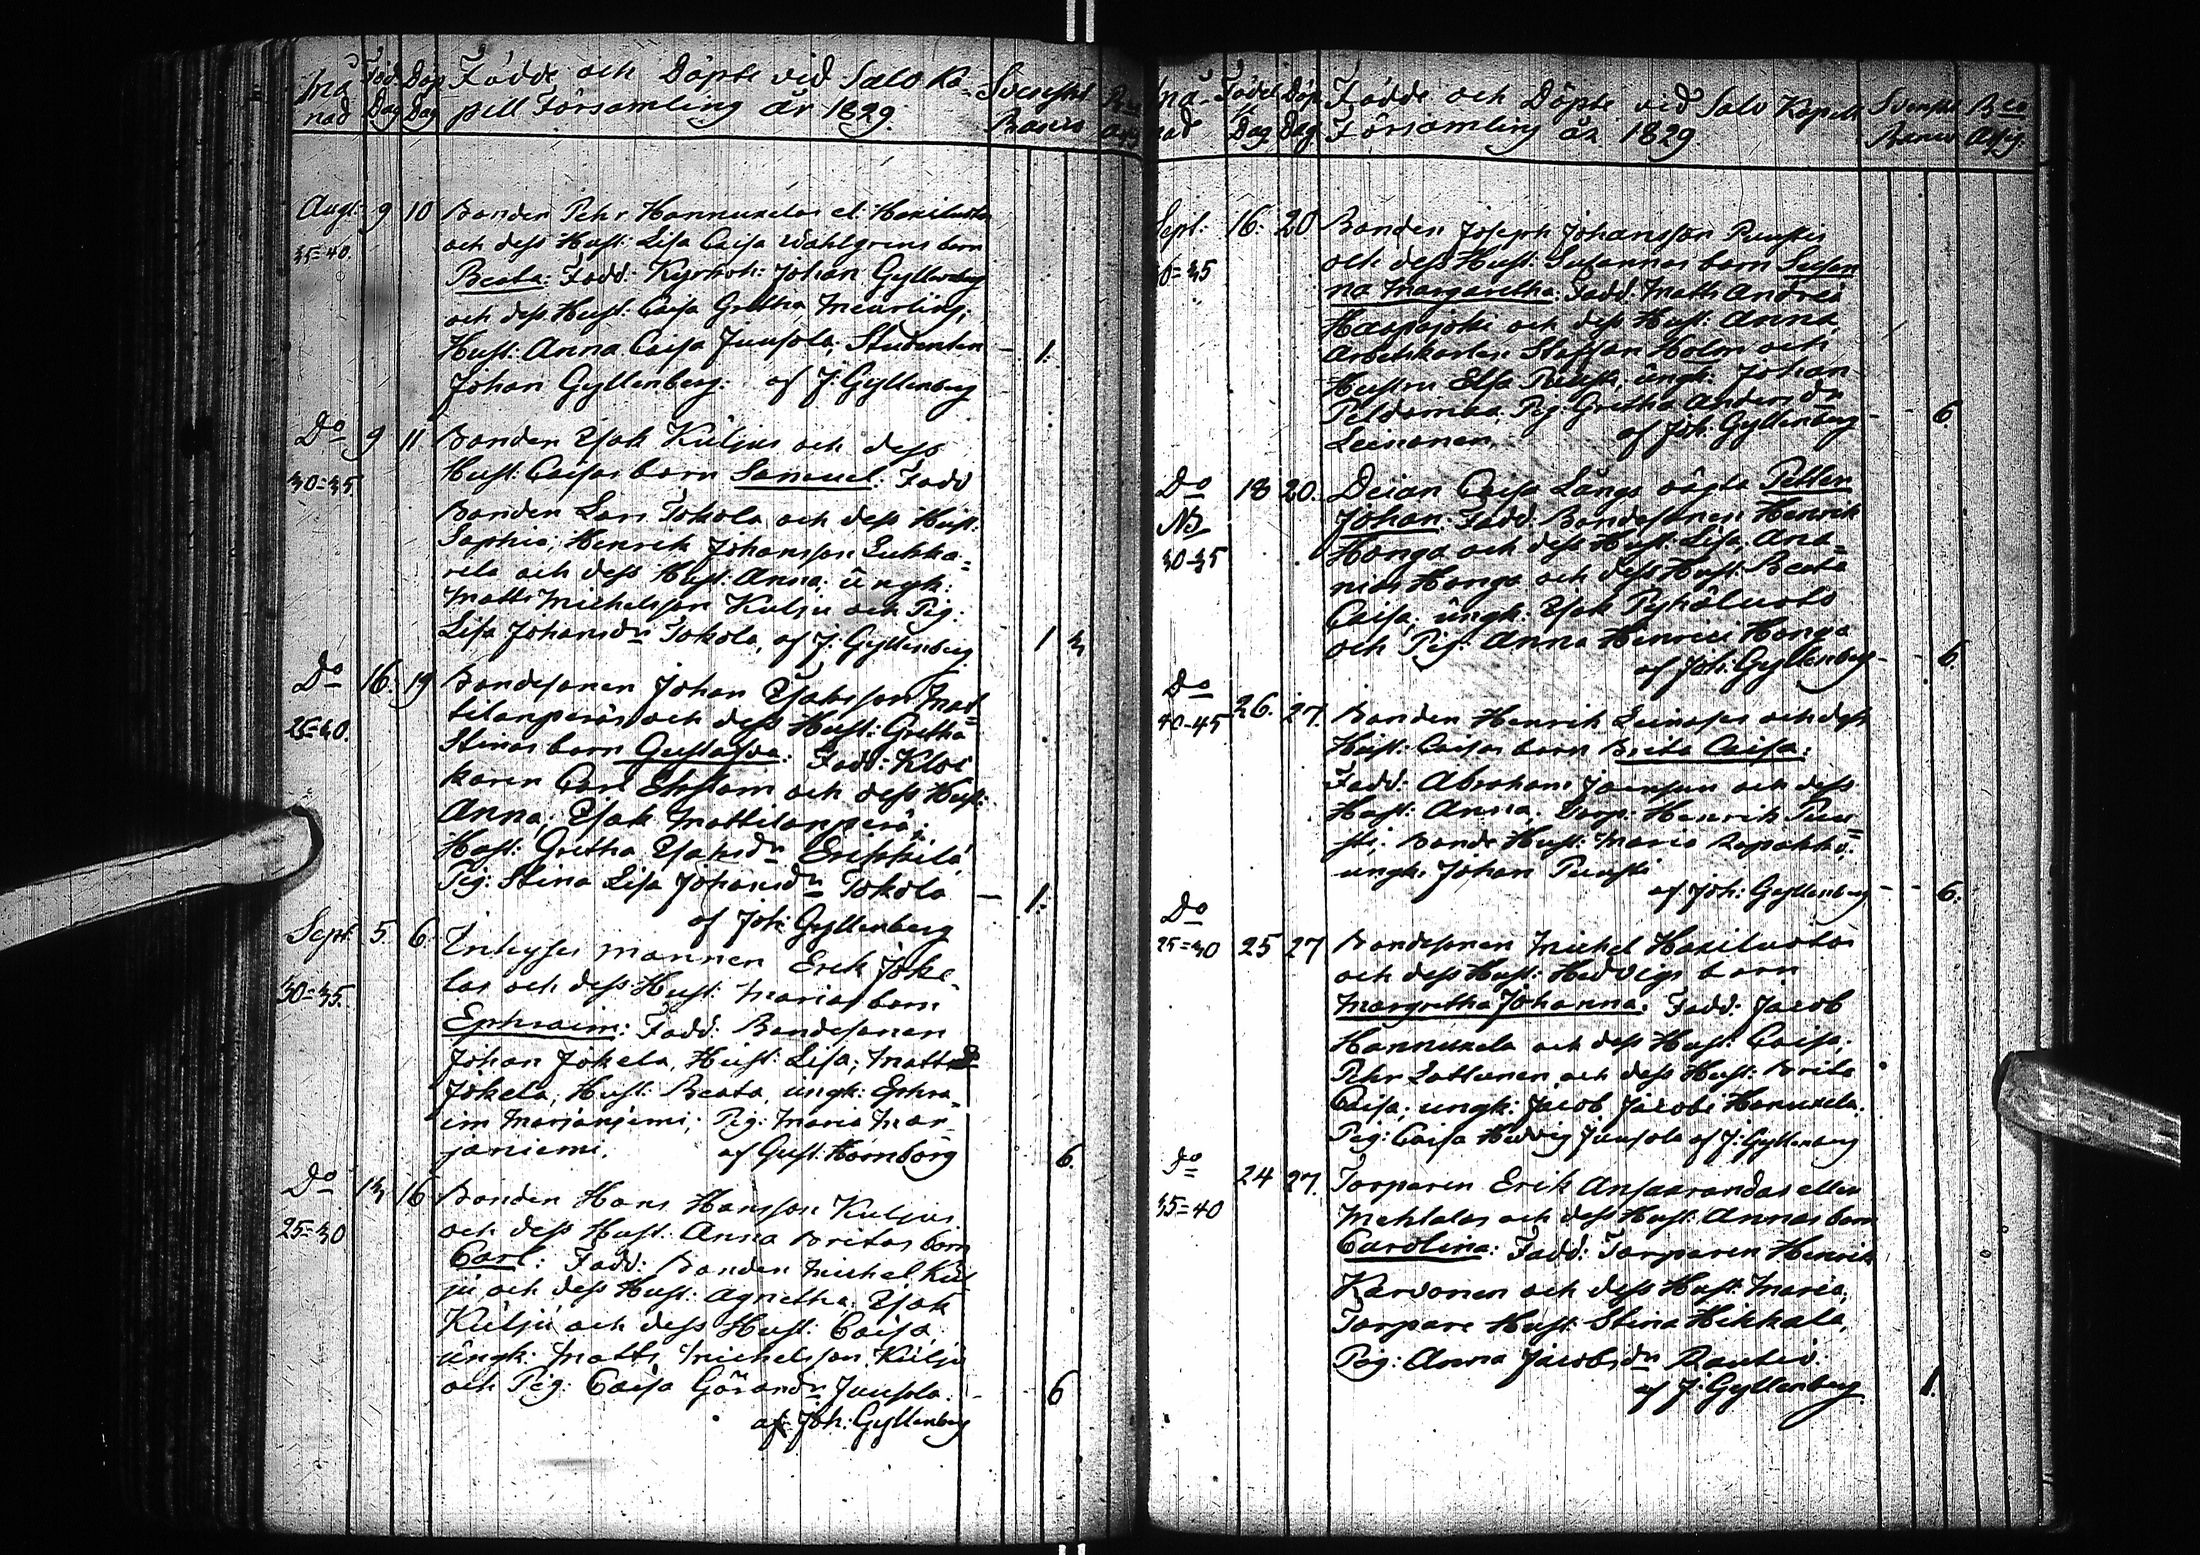 Må Föd. Döp Födde och Döpte vid Salo Ka= Svenskt
nad Dag Dag pell Församling år 1829. Banco
Augt: 9 10 Bonden Pehr Hannukelas el: Hakiluoto
35=40. och dess Hust: Lisa Caisa Wahlgrens barn
Beata: Fadd: Kyrkoh: Johan Gyllenberg
och dess Hust: Caisa Gretha Meurling;
Hust: Anna Caisa Junsola, Studenten — 1.
Johan Gyllenberg: af J: Gyllenberg
Do 9 11. Bonden Isak Kuljus och dess
30=35. Hust: Caisas barn Samuel: Fadd
Bonden Lars Tokola och dess Hust:
Sophia; Henrik Johansson Lukka=
rila och dess Hust: Anna; ungk:
Matts Michelsson Kulju och Pig:
Lisa Johansdr Tokola, af J: Gyllenberg. 1 3
Do 16. 19 Bondesonen Johan Isaksson Mat=
25=30. tilanperäs och dess Hust: Gretha
Stinas barn Gustafva: Fadd: Kloc
karen Carl Ekstam och dess Hust:
Anna; Isak Mattilanperä;
Hust: Gretha Isaksdr Erkkilä
Pig: Stina Lisa Johansdr Tokola — 1.
af Joh: Gyllenberg
Sept: 5. 6. Inhyses mannen Erik Joke-
30=35. las och dess Hust: Marias barn
Ephraim: Fadd: Bondesonen
Johan Jokela, Hust: Lisa; Matts
Jokela, Hust: Beata, ungk: Ephra=
im Marjaniemi; Pig: Maria Mar-
janiemi. af Gust: Hornborg 6.
Do 13 16 Bonden Hans Hansson Kuljus
25=30 och dess Hust: Anna Britas barn
Carl: Fadd: Bonden Michel Kul
ju och dess Hust: Agnetha; Isak
Kulju och dess Hust: Caisa,
ungk: Matts Michelsson Kulju
och Pig: Caisa Göransdr Junsola. - 6
af: Joh: Gyllenberg
Må- Född Döp Födde och Döpte vid Salo Kapell Svenskt Bco
nad Dag. Dag Församling år 1829. Banco Assig:
Sept: 16. 20 Bonden Joseph Johansson Punstis
30=35 och dess Hust: Susannas barn Susan
na Margaretha: Fadd: Matts Andreæ
Haapajoki och dess Hust: Anna,
Arbetskarlen Staffan Holm och
Hustru Elsa Ungk: Johan
Peldomaa, Pig: Gretha Andersdr - - 6
Leinonen. af Joh: Gyllenberg
Do 18 20. Deian Caisa Långs oägta Petter
NB Johan: Fadd: Bondesonen Henrik
30-35 Honga och dess Hust: Lisa; Ana=
nias Honga och dess Hust: Beata
Caisa; ungk: Isak Pyhäluoto
och Pig: Anna Henrici Honga
af Joh: Gyllenberg - - 6.
Do 26. 27. Bonden Henrik Leinoses och dess
40-45 Hust: Caisas barn Brita Caisa:
Fadd: Abraham Jounsuu och dess
Hust: Anna. Torp: Henrik Pun=
sti; Bonde Hust: Maria Ropakko;
ungk: Johan Punsti
af Joh: Gyllenberg - - 6.
Do
25=30 25 27 Bondesonen Michel Hakiluotos
och dess Hust: Hedvigs barn
Margretha Johanna. Fadd: Jacob
Hannukela och dess Hust: Caisa;
Pehr Lattunen, och dess Hust: Brita
Caisa; ungk: Jacob Jacobi Hanukela.
Pig: Caisa Hedvig Junsola af J: Gyllenberg
Do 24 27. Torparen Erik Ansaarandas eller
35=40 Mehtalas och dess Hust: Annas barn
Carolina: Fadd: Torparen Henrik
Karvonen och dess Hust: Maria;
Torpare Hust: Stina Hikkala,
Pig: Anna Jacobsdr Rautio.
af J: Gyllenberg. 1.